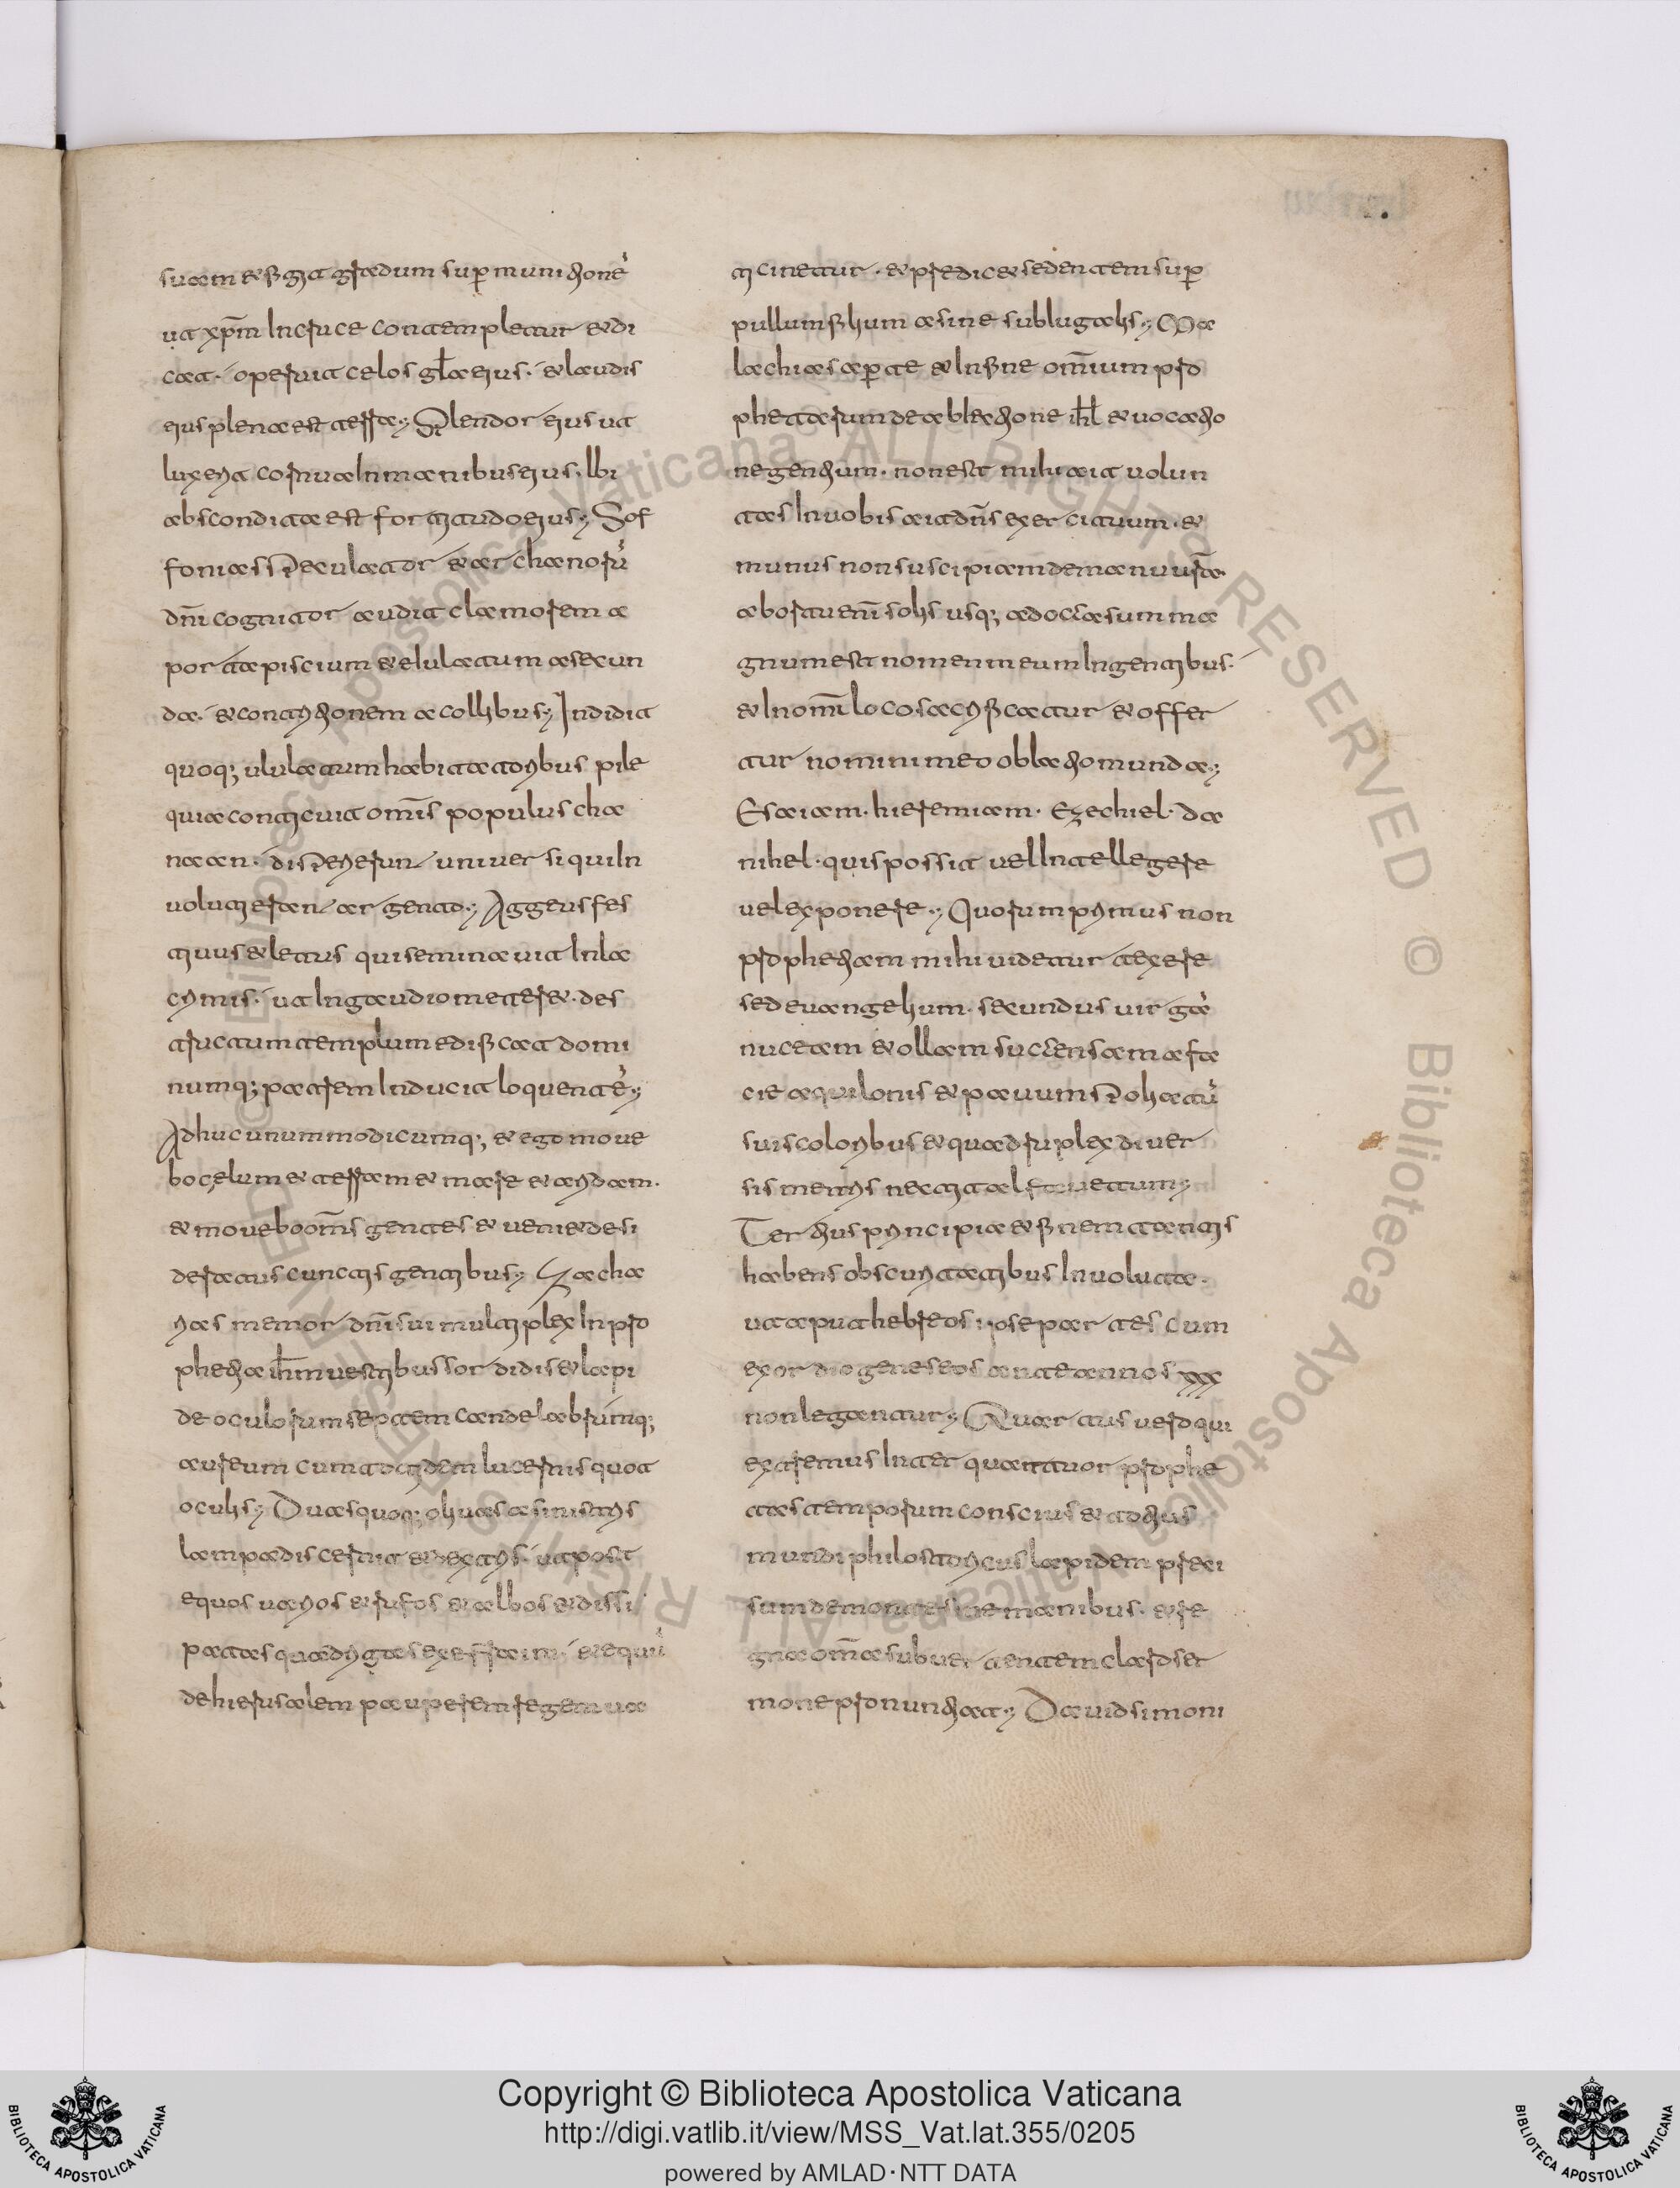 suam & figit gradum super munitionē
ut xp̄m In cruce contempletur & di
cat· operuit celos gła eius· & laudis
eius plena est terra; Splendor eius ut
lux erit cornua In manibus eius· Ibi
abscondita est fortitudo eius; Sof
fonias speculator & archanorū
dn̄i cognitor audit clamorem a
porta piscium & eiulatum a secun
da· & contritionem a collibus; Indidit
quoq; ululatum habitatoribus pile
quia conticuit om̄is populus cha
naan· disperierunt universi qui In
voluti erant argento; Aggeus fes
tivus & letus qui seminavit In la
crimis· ut In gaudio meteret· des
tructum templum edificat domi
numq; patrem Inducit loquentē;
Adhuc unum modicumq; & ego move
bo celum & terram & mare & aridam·
& movebo om̄s gentes & veni& desi
deratus cunctis gentibus; Zacha
rias memor dn̄i sui multiplex In pro
phetia ih̄m vestibus sordidis & lapi
de oculorum septem candelabrumq;
aureum cum totidem lucernis quot
oculis; Duas quoq; olivas a sinistris
lampadis cernit & dextris· ut post
equos varios & rufos & albos & dissi
patas quadrigas ex effraim· & equū
de hierusalem pauperem regem va
ticinetur· & predic& sedentem super
pullum filium asine sublugalis; Ma
lachias aperte & In fine om̄ium pro
phetarum de ablectione ihl̄ & vocatio
ne gentium· non est mihi ait volun
tas In vobis ait dn̄s exercituum· &
munus non suscipiam de manu vr̄a·
ab ortu enī solis usq; ad occasum ma
gnum est nomen meum In gentibus·
& In om̄i loco sacrificatur & offer
tur nomini meo oblatio munda;
Esaiam· hieremiam· Ezechiel· da
nihel· quis possit vel Intellegere
vel exponere; Quorum primus non
prophetiam mihi videtur texere
sed evangelium· secundus virgā
nuceam & ollam succensam a fa
cie aquilonis & pavum spoliatū
suis coloribus & quadruplex diver
sis metris nectit alfavetum;
Tertius principia & finem tantis
habens obscuritatibus Involuta·
ut aput hebreos ipse partes cum
exordio geneseos ante annos xxx
non legantur; Quartus vero qui
extremus Inter quattuor prophe
tas temporum conscius & totius
mundi philostoricus lapidem preci
sum de monte sine manibus· & re
gna om̄a subvertentem claro ser
mone pronuntiat; David simoni
Copyright © Biblioteca Apostolica Vaticana
http://digi.vatlib.it/view/MSS_Vat.lat.355/0205
powered by AMLAD·NTT DATA